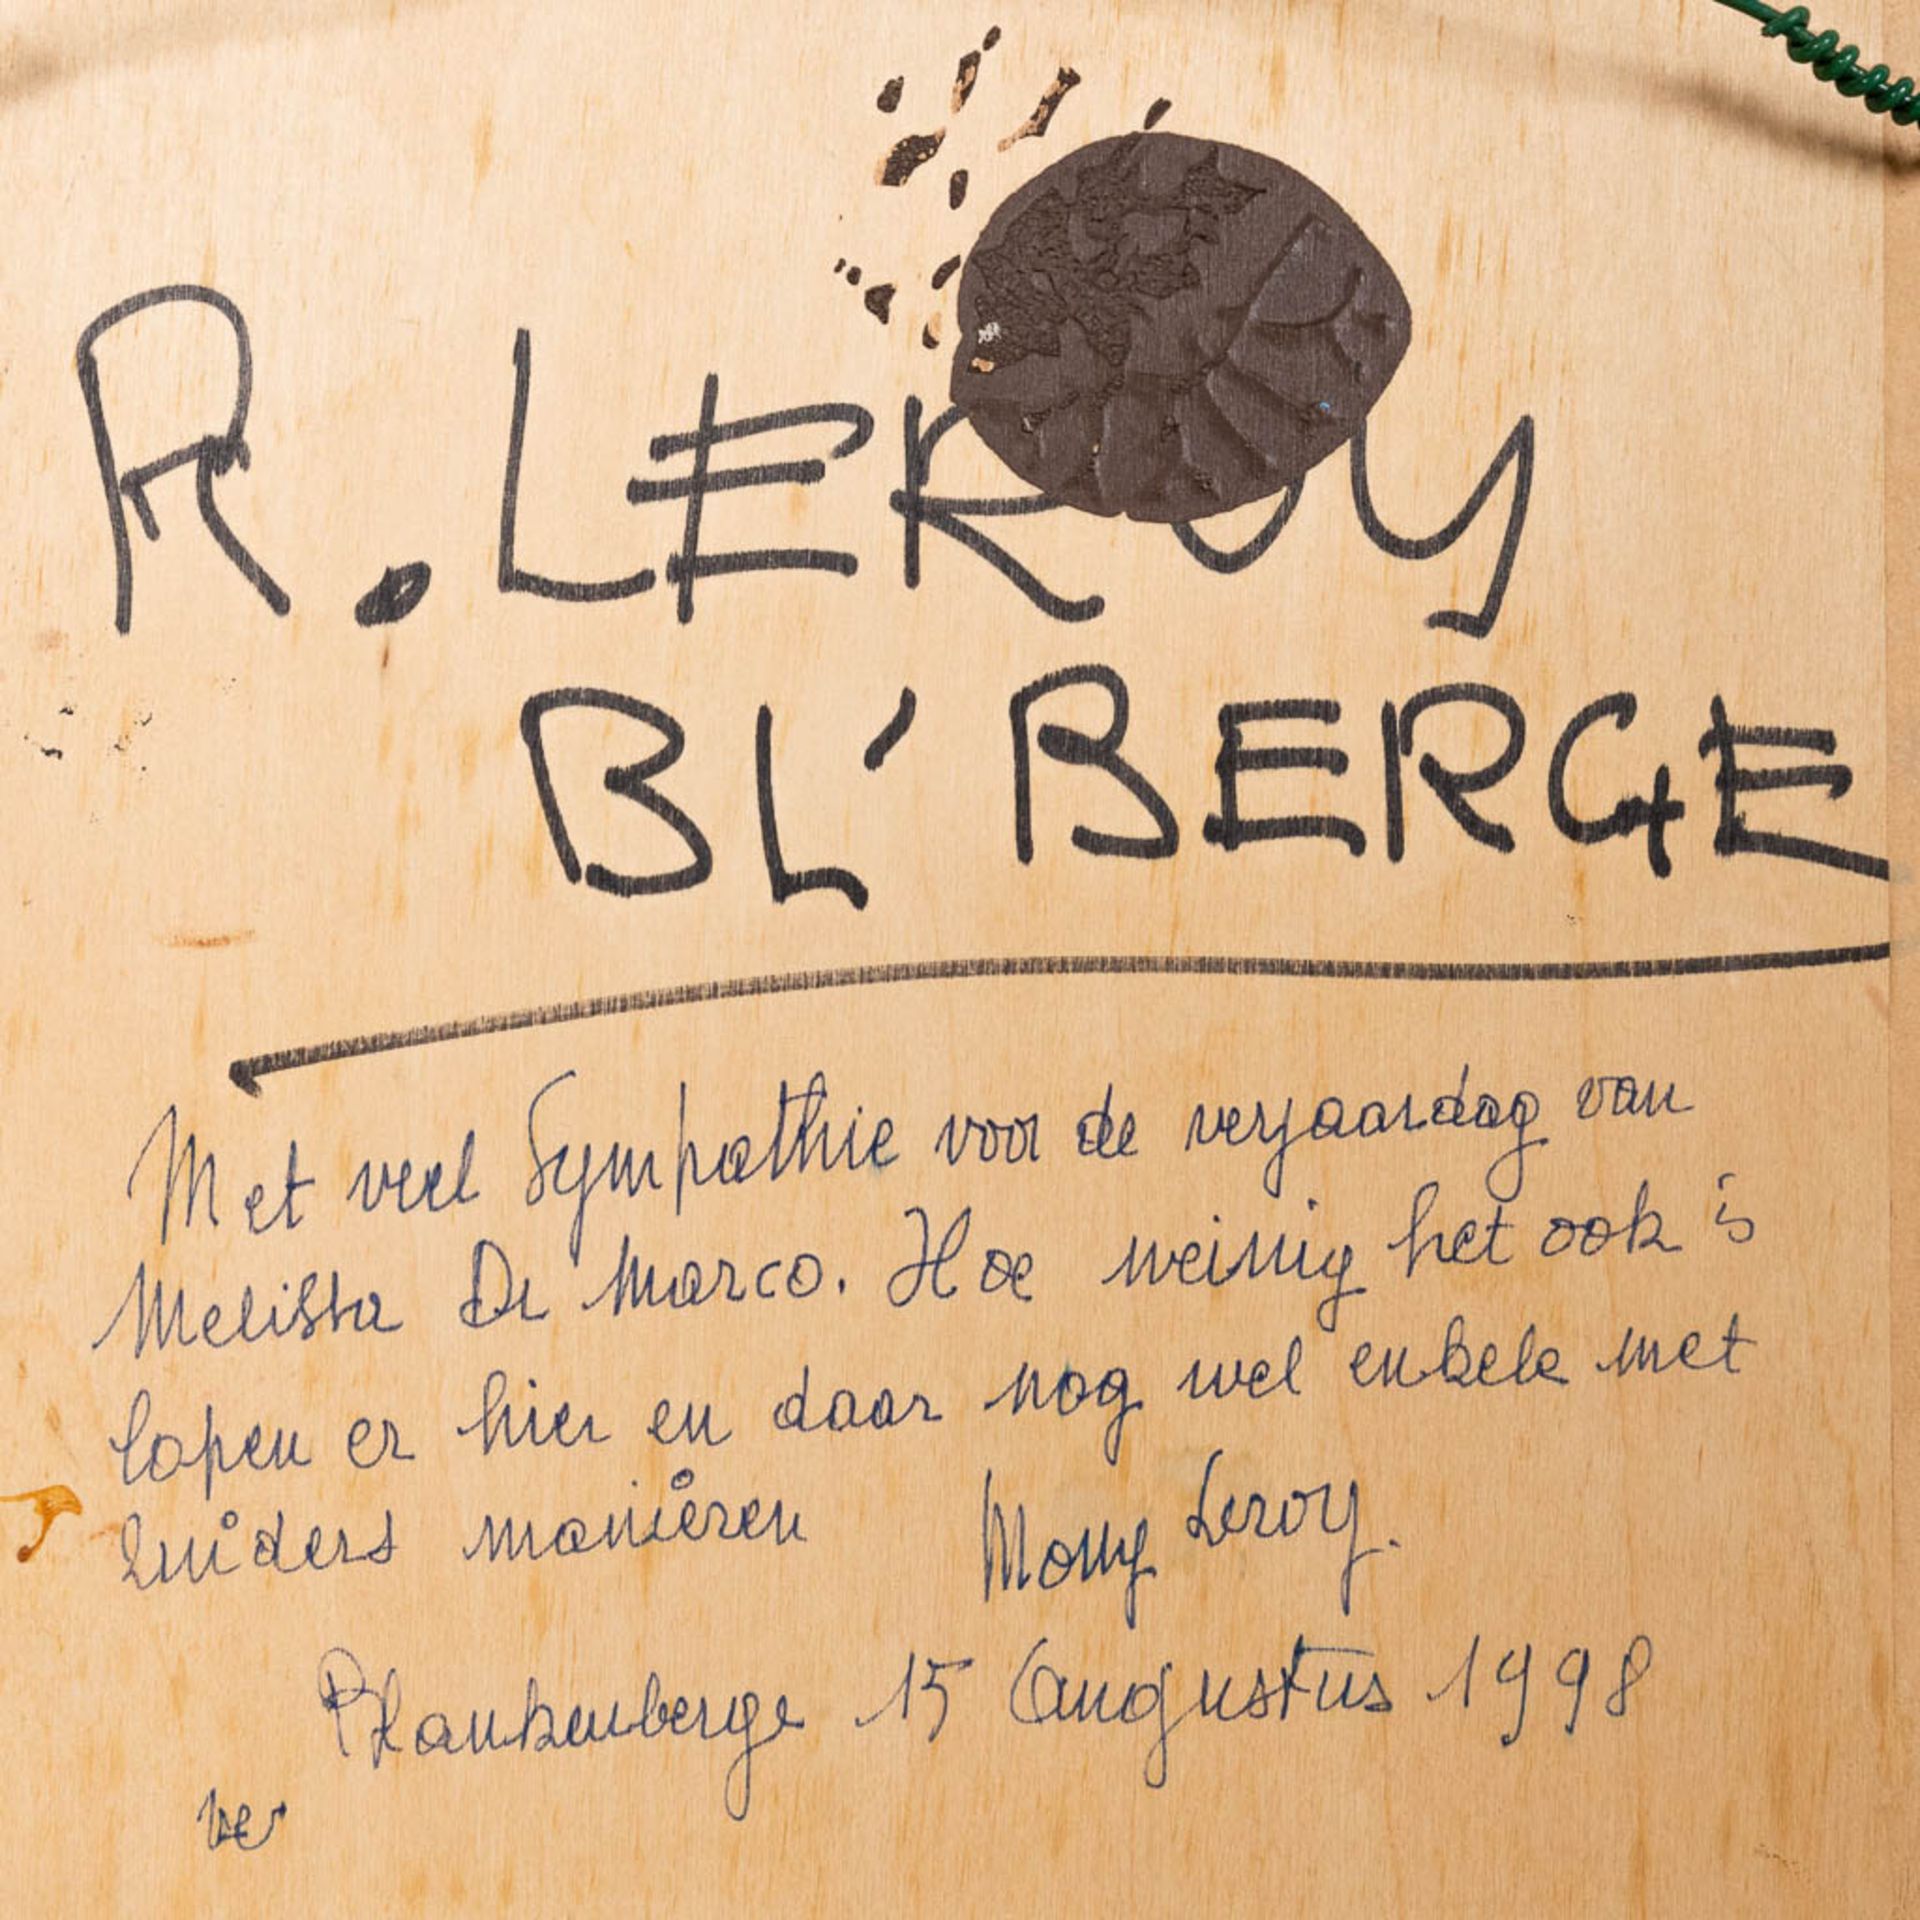 R. LEROY
BL' BERGE
Met veel Sympathie voor de verjaardag van
Melissa De Marco. Hoe weinig het ook is
lopen er hier en daar nog wel enkele met
zuiders manieren Mony Leroy.
Blankenberge 15 Augustus 1998